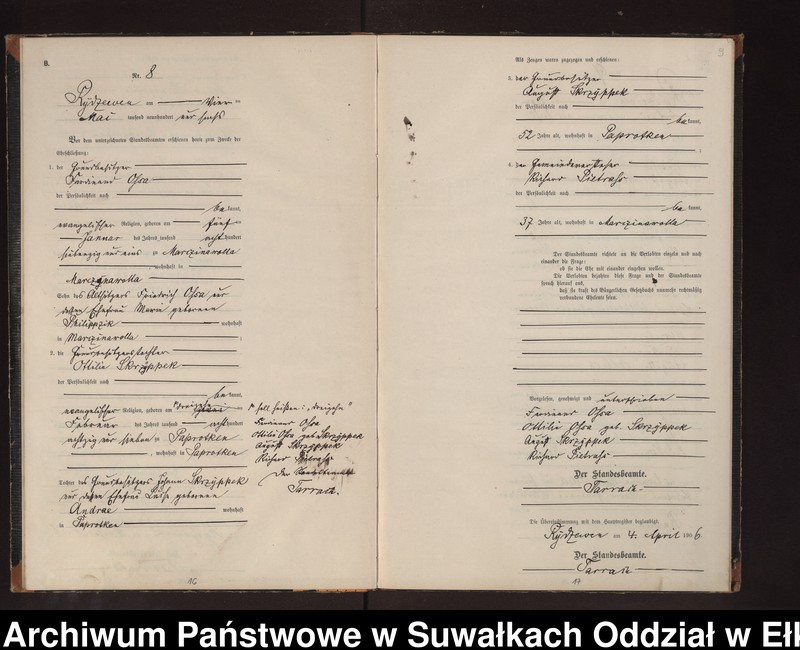 B.
Nr. 8
Rydzewen am Vier
Mai tausend neunhundert und sechs
Vor dem unterzeichneten Standesbeamten erschienen heute zum Zwecke der
Eheschließung:
1. der Grundbesitzer
Ferdinand Ossa
der Persönlichkeit nach
be kannt,
evangelischer Religion, geboren am fünf
Januar des Jahres tausend acht hundert
siebenzig und eins zu Marczinawolla
, wohnhaft in
Marczinawolla
Sohn des Altsitzers Friedrich Ossa und
dessen Ehefrau Marie geborenen
Philippzik wohnhaft
in Marczinawolla ;
2. die Grundbesitzerstochter
Ottilie Skrzyppek
der Persönlichkeit nach
be kannt,
evangelischer Religion, geboren am dreizehn
Februar des Jahres tausend acht hundert
achtzig und sieben zu Paprotken
, wohnhaft in Paprotken
Tochter des Grundbesitzers Johann Skrzyppek
und dessen Ehefrau Luise geborenen
Andrae wohnhaft
in Paprotken
soll heißen: "dreizehn"
Ferdinand Ossa
Ottilie Ossa geb. Skrzyppek
August Skrzyppek
Richard Pietrass
Der Standesbeamte
Tarrach.
16
9
Als Zeugen waren zugezogen und erschienen:
3. der Grundbesitzer
August Skrzyppek
der Persönlichkeit nach
be kannt,
52 Jahre alt, wohnhaft in Paprotken
;
4. der Gemeindevorsteher
Richard Pietrass
der Persönlichkeit nach
be kannt,
37 Jahre alt, wohnhaft in Marczinawolla
Der Standesbeamte richtete an die Verlobten einzeln und nach
einander die Frage:
ob sie die Ehe mit einander eingehen wollen.
Die Verlobten bejahten diese Frage und der Standesbeamte
sprach hierauf aus,
daß sie kraft des Bürgerlichen Gesetzbuchs nunmehr rechtmäßig
verbundene Eheleute seien.
Vorgelesen, genehmigt und unterschrieben
Ferdinand Ossa
Ottilie Ossa geb. Skrzyppek
August Skrzyppek
Richard Pietrass
Der Standesbeamte.
Tarrach
Die Übereinstimmung mit dem Hauptregister beglaubigt.
Rydzewen am 4. April 1906
Der Standesbeamte.
Tarrach
17
Archiwum Państwowe w Suwałkach Oddział w Ełk